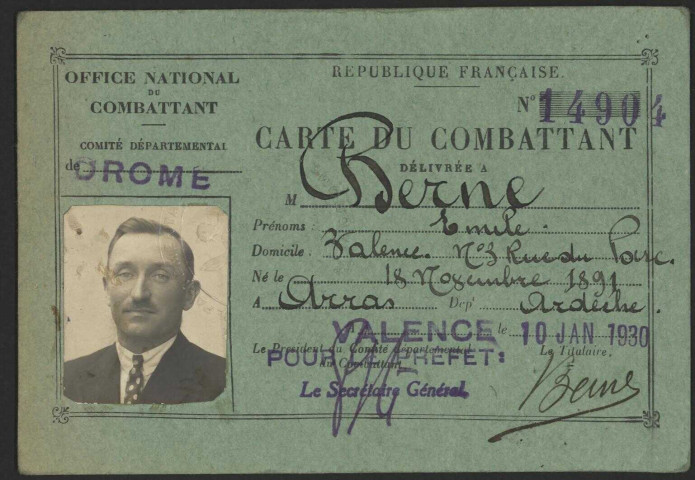 OFFICE NATIONAL
DU
COMBATTANT
COMITÉ DÉPARTEMENTAL
de DROME
REPUBLIQUE FRANÇAISE.
N° 14904
CARTE DU COMBATTANT
DÉLIVRÉE A
M Berne
Prénoms : Emile.
Domicile : Valence. N°3 Rue du Parc.
Né le 18 Novembre 1891
A Arras Dep' Ardèche.
VALENCE le 10 JAN 1930
Le Président du Comité départemental
du Combattant,
POUR LE PREFET:
Le Secrétaire Général,
Le Titulaire,
Berne